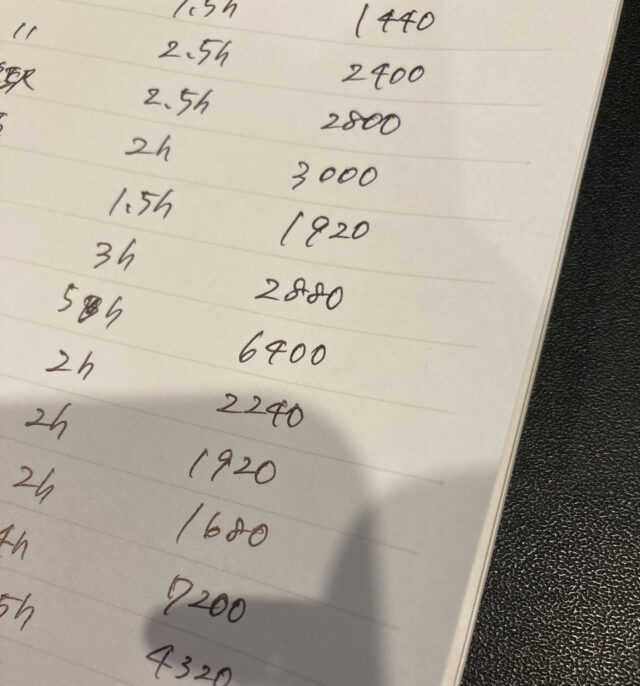 1.5h 1440
〃 2.5h 2400
駅 2.5h 2800
2h 3000
1.5h 1920
3h 2880
5h 6400
2h 2240
2h 1920
2h 1680
4h 7200
5h 4320